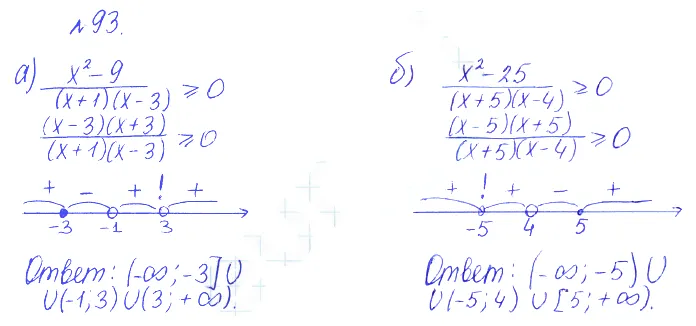 №93.
а) x² – 9 / (x+1)(x–3) ≥ 0
(x–3)(x+3) / (x+1)(x–3) ≥ 0
+ – + ! +
-3 -1 3
Ответ: (-∞; -3] ∪
∪(-1; 3) ∪ (3; +∞).
б) x² – 25 / (x+5)(x–4) ≥ 0
(x–5)(x+5) / (x+5)(x–4) ≥ 0
+ ! + – +
-5 4 5
Ответ: (-∞; -5) ∪
∪(-5; 4) ∪ [5; +∞).